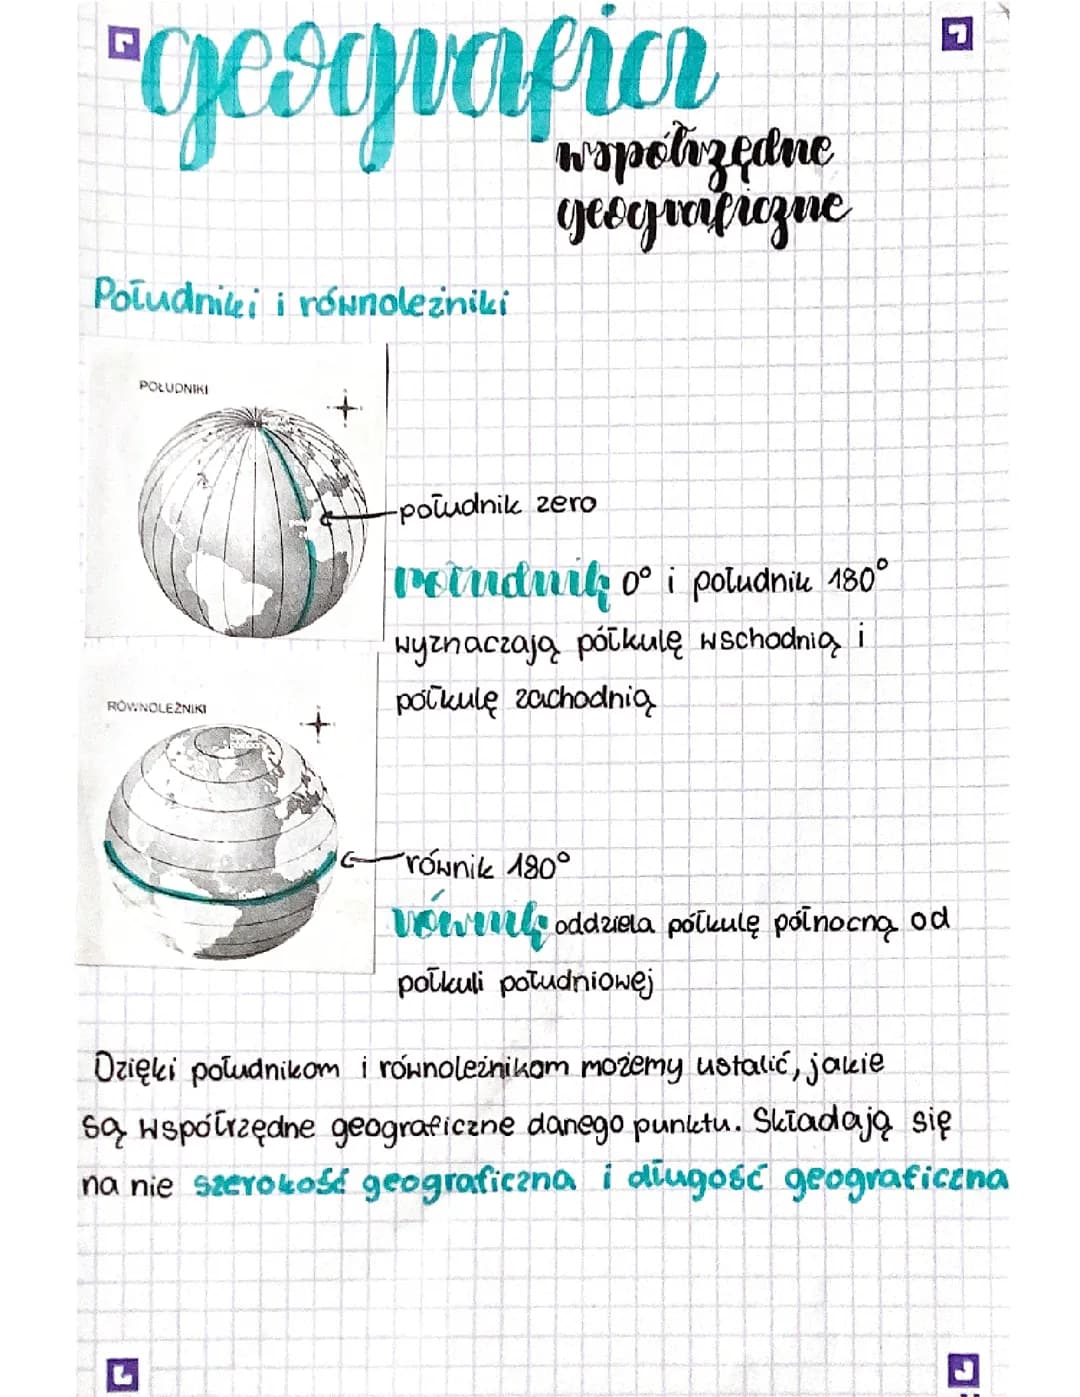 geografia
współrzędne
geograficzne
Południki i równoleżniki
POŁUDNIKI
południk zero
południk 0° i południk 180°
wyznaczają półkulę wschodnią i
półkulę zachodnią
RÓWNOLEŻNIKI
równik 180°
równik oddziela półkulę północną od
półkuli południowej
Dzięki południkom i równoleżnikom możemy ustalić, jakie
są współrzędne geograficzne danego punktu. Składają się
na nie szerokość geograficzna i długość geograficzna